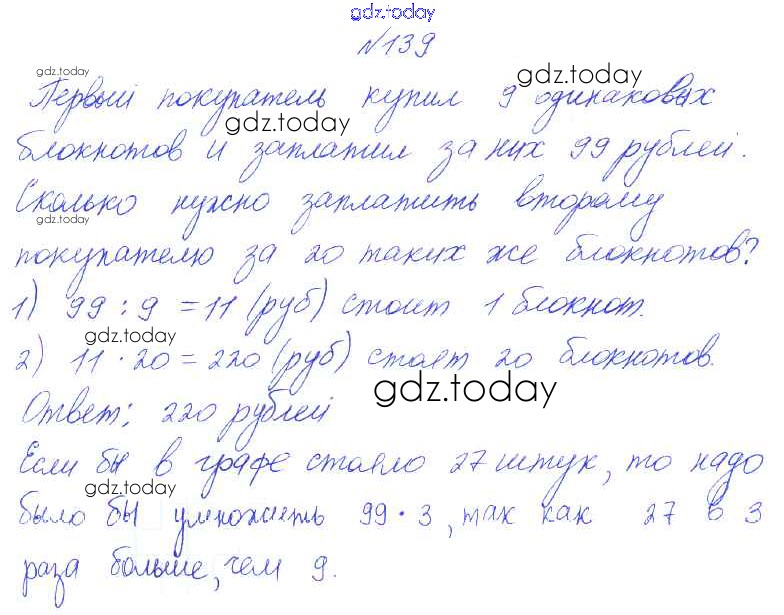 gdz.today
№139
gdz.today
gdz.today
Первый покупатель купил 9 одинаковых
gdz.today
блокнотов и заплатил за них 99 рублей.
Сколько нужно заплатить второму
gdz.today
покупателю за 20 таких же блокнотов?
1) 99 : 9 = 11 (руб) стоит 1 блокнот.
gdz.today
2) 11 · 20 = 220 (руб) стоят 20 блокнотов.
gdz.today
Ответ: 220 рублей
Если бы в графе стояло 27 штук, то надо
gdz.today
было бы умножить 99 · 3, так как 27 в 3
раза больше, чем 9.